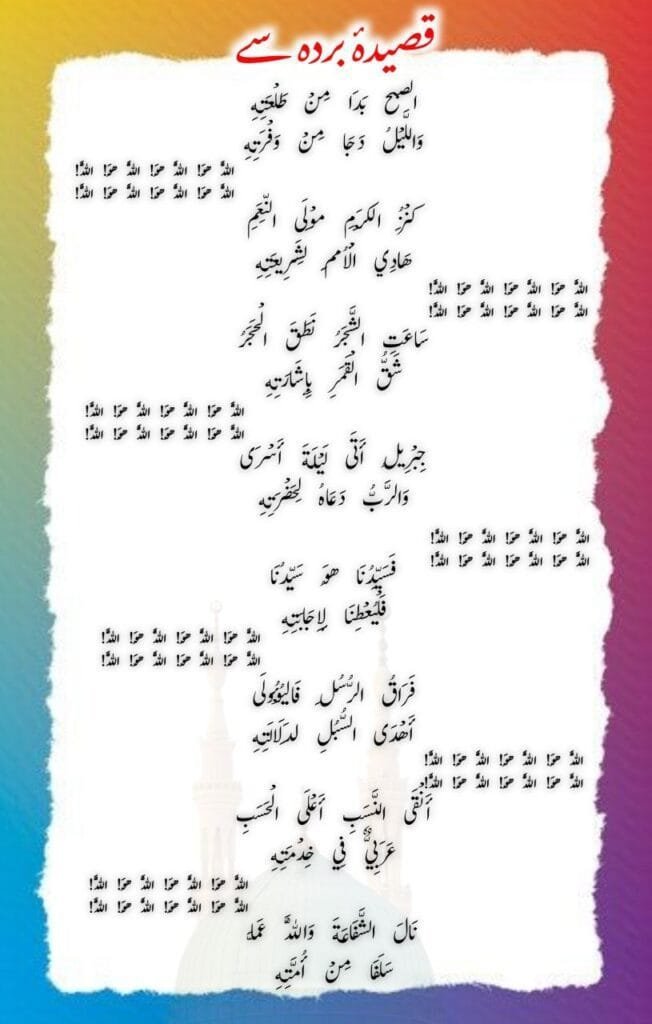 قصیدۂ بردہ سے
الصبح بَدَا مِنْ طَلْعَتِهِ
وَاللَّيْلُ دَجَا مِنْ وَفْرَتِهِ
اللہُ ھو! اللہُ ھو! اللہُ ھو! اللہُ!
اللہُ ھو! اللہُ ھو! اللہُ ھو! اللہُ!
كَنْزُ الكرَمِ مَوْلَى النِّعَمِ
هَادِي الْأُمم لِشَرِيعَتِهِ
اللہُ ھو! اللہُ ھو! اللہُ ھو! اللہُ!
اللہُ ھو! اللہُ ھو! اللہُ ھو! اللہُ!
سَاعَتِ الشَّجَرُ نَطَقَ الْحَجَرُ
شَقُّ الْقَمَرِ بِإِشَارَتِهِ
اللہُ ھو! اللہُ ھو! اللہُ ھو! اللہُ!
اللہُ ھو! اللہُ ھو! اللہُ ھو! اللہُ!
جِبْرِيلِ أَتَى لَيْلَةَ أَسْرَى
وَالرَّبُّ دَعَاهُ لِحَضْرَتِهِ
اللہُ ھو! اللہُ ھو! اللہُ ھو! اللہُ!
اللہُ ھو! اللہُ ھو! اللہُ ھو! اللہُ!
فَسَيِّدُنَا هوَ سَيِّدُنَا
فَلْيُعْطِنَا لِإِجَابَتِهِ
اللہُ ھو! اللہُ ھو! اللہُ ھو! اللہُ!
اللہُ ھو! اللہُ ھو! اللہُ ھو! اللہُ!
فَرَاقُ الرُّسُلِ فَاليُؤُولَى
أَهْدَى السُّبُلِ لدَلَالَتِهِ
اللہُ ھو! اللہُ ھو! اللہُ ھو! اللہُ!
اللہُ ھو! اللہُ ھو! اللہُ ھو! اللہُ!
أَنْقَى النَّسَبِ أَعْلَى الْحَسَبِ
عَرَبِيٌّ فِي خِدْمَتِهِ
اللہُ ھو! اللہُ ھو! اللہُ ھو! اللہُ!
اللہُ ھو! اللہُ ھو! اللہُ ھو! اللہُ!
نَالَ الشَّفَاعَةَ وَاللهُ عَمله
سَلَفَا مِنْ أُمَّتِهِ